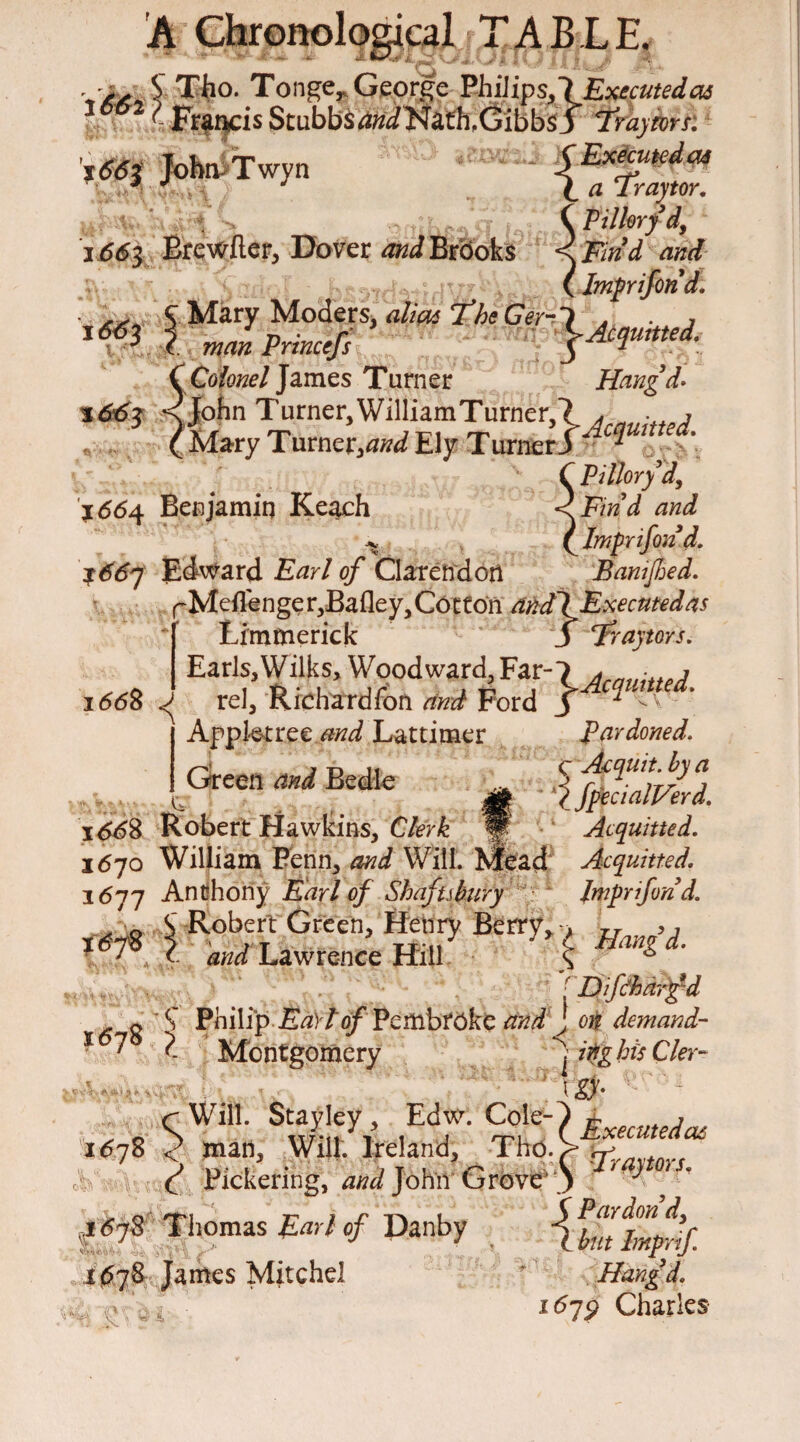 A Chronological TABLE.
1662 { Tho. Tonge, George Philips, } Executed as
Francis Stubbs and Nath. Gibbs } Traytors.
1663 John Twyn { Executed as
a Traytor.
{ Pillory'd,
1663 Brewſter, Dover and Brooks { Fin'd and
{ Impriſon'd.
1663 { Mary Moders, alias The Ger- } Acquitted.
man Princeſs
{ Colonel James Turner Hang'd.
1663 { John Turner, William Turner, } Acquitted.
{ Mary Turner, and Ely Turner }
{ Pillory'd,
1664 Benjamin Keach { Fin'd and
{ Impriſon'd.
1667 Edward Earl of Clarendon Baniſhed.
Meſſenger, Baſley, Cotton and } Executed as
Limmerick } Traytors.
Earls, Wilks, Woodward, Far- } Acquitted.
1668 { rel, Richardſon and Ford }
Appletree and Lattimer Pardoned.
Green and Bedle { Acquit. by a
{ ſpecial Verd.
1668 Robert Hawkins, Clerk Acquitted.
1670 William Penn, and Will. Mead Acquitted.
1677 Anthony Earl of Shaftsbury Impriſon'd.
1678 { Robert Green, Henry Berry, } Hang'd.
and Lawrence Hill
{ Diſcharg'd
1678 { Philip Earl of Pembroke and } on demand-
Montgomery } ing his Cler-
gy.
{ Will. Stayley, Edw. Cole- } Executed as
1678 { man, Will. Ireland, Tho. } Traytors.
{ Pickering, and John Grove }
1678 Thomas Earl of Danby { Pardon'd,
{ but Impriſ.
1678 James Mitchel Hang'd.
1679 Charles